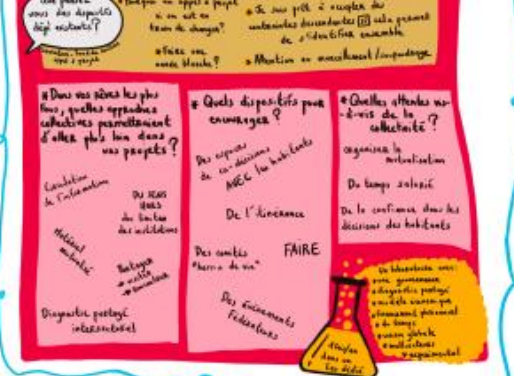 vous des dispositifs
déjà existants ?
si on est en
train de changer ?
* Faire une
année blanche ?
* Je suis prêt à accepter des
contraintes descendantes si cela permet
de s'identifier ensemble
* Dans vos rêves les plus
fous, quelles approches
collectives permettraient
d'aller plus loin dans
vos projets ?
Circulation
de l'information
DU SENS
des limites
des institutions
Matériel
mutualisé
Partager
Diagnostic partagé
intersectoriel
* Quels dispositifs pour
encourager ?
Des espaces
de co-décisions
AVEC les habitants
De l'itinérance
Des comités
FAIRE
Des événements
Fédérateurs
* Quelles attentes vis-
à-vis de la
collectivité ?
organiser la
mutualisation
Du temps salarié
De la confiance dans les
décisions des habitants
Un laboratoire avec:
* une gouvernance
* diagnostic partagé
* modèle économique
* financement pluriannuel
* du temps
* vision globale
* expérimental
dans un
lieu dédié